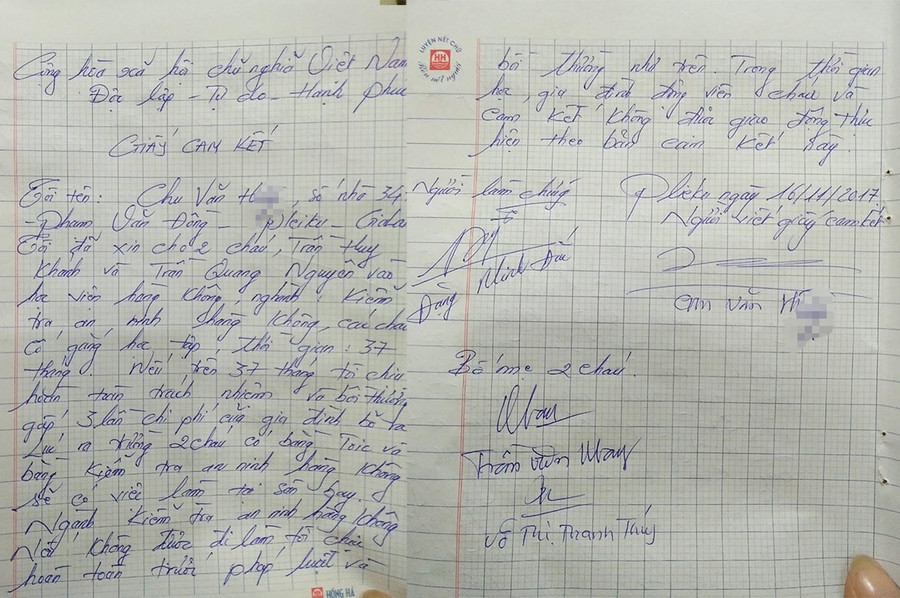 Cộng hòa xã hội chủ nghĩa Việt Nam
Độc lập - Tự do - Hạnh phúc
GIẤY CAM KẾT
Tôi tên: Chu Văn H, số nhà 34
- Phạm Văn Đồng - Pleiku - Gialai
Tôi đã xin cho 2 cháu, Trần Huy
Khánh và Trần Quang Nguyên vào
học viện hàng không, nghành: Kiểm
tra an ninh hàng không, các cháu
cố gắng học tập thời gian: 37
tháng. Nếu trên 37 tháng tôi chịu
hoàn toàn trách nhiệm và bồi thường
gấp 3 lần chi phí của gia đình bỏ ra
Lúc ra trường 2 cháu có bằng Toic và
bằng kiểm tra an ninh hàng không
sẽ có việc làm tại sân bay.
Ngành kiểm tra an ninh hàng không
Nếu không được đi làm tôi chịu
hoàn toàn trước pháp luật và
HỒNG HÀ
LUYỆN NÉT CHỮ
RÈN NẾT NGƯỜI
HH
bồi thường như trên. Trong thời gian
học, gia đình động viên cháu và
cam kết không được giao động thực
hiện theo bản cam kết này.
Người làm chứng
Đặng Minh Đức
Pleiku ngày 16/11/2017
Người viết giấy cam kết
Chu Văn H
Bố mẹ 2 cháu.
Trần Văn May
Võ Thị Thanh Thúy